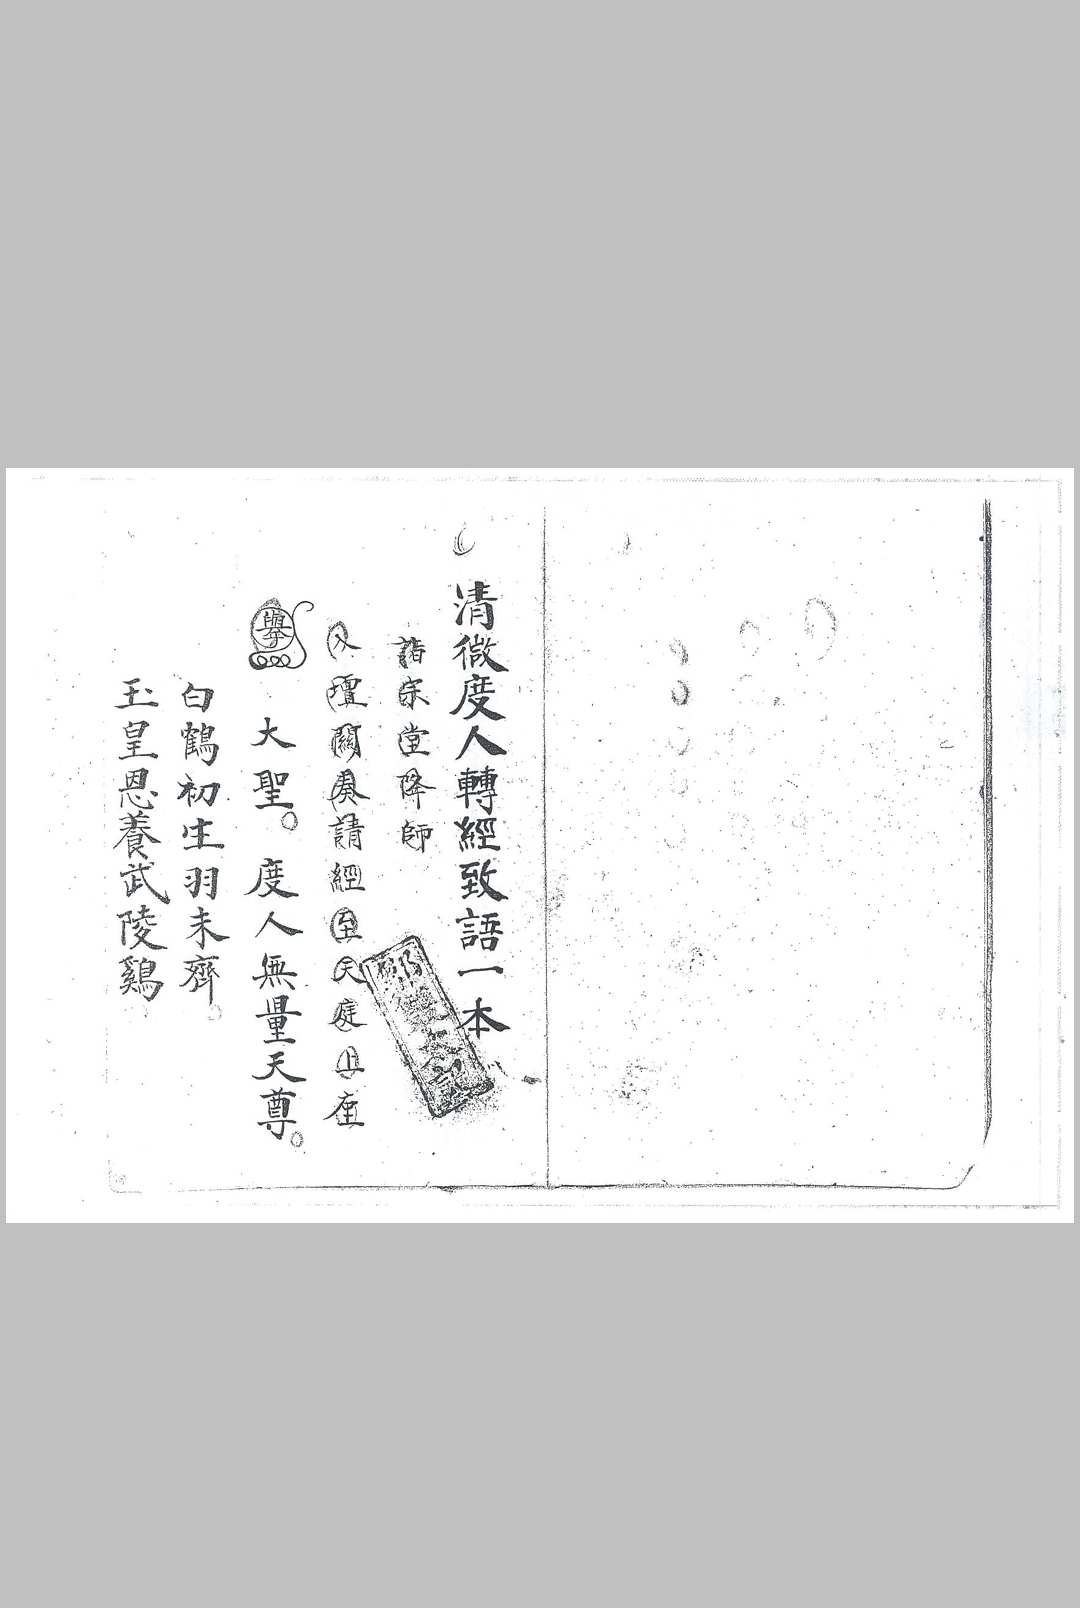 清微度人轉經致語一本
詣宗堂降師
入壇關奏請經至天庭上座
舉
大聖。度人無量天尊。
白鶴初生羽未齊。
玉皇恩養武陵鷄